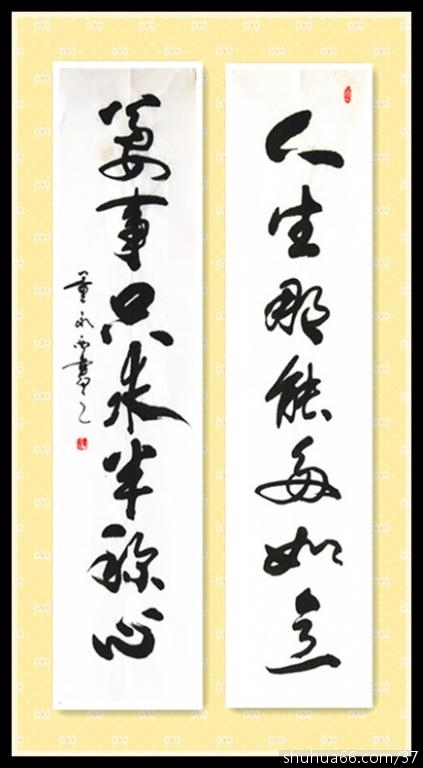 人生那能多如意
萬事只求半称心
shuhua66.com/37